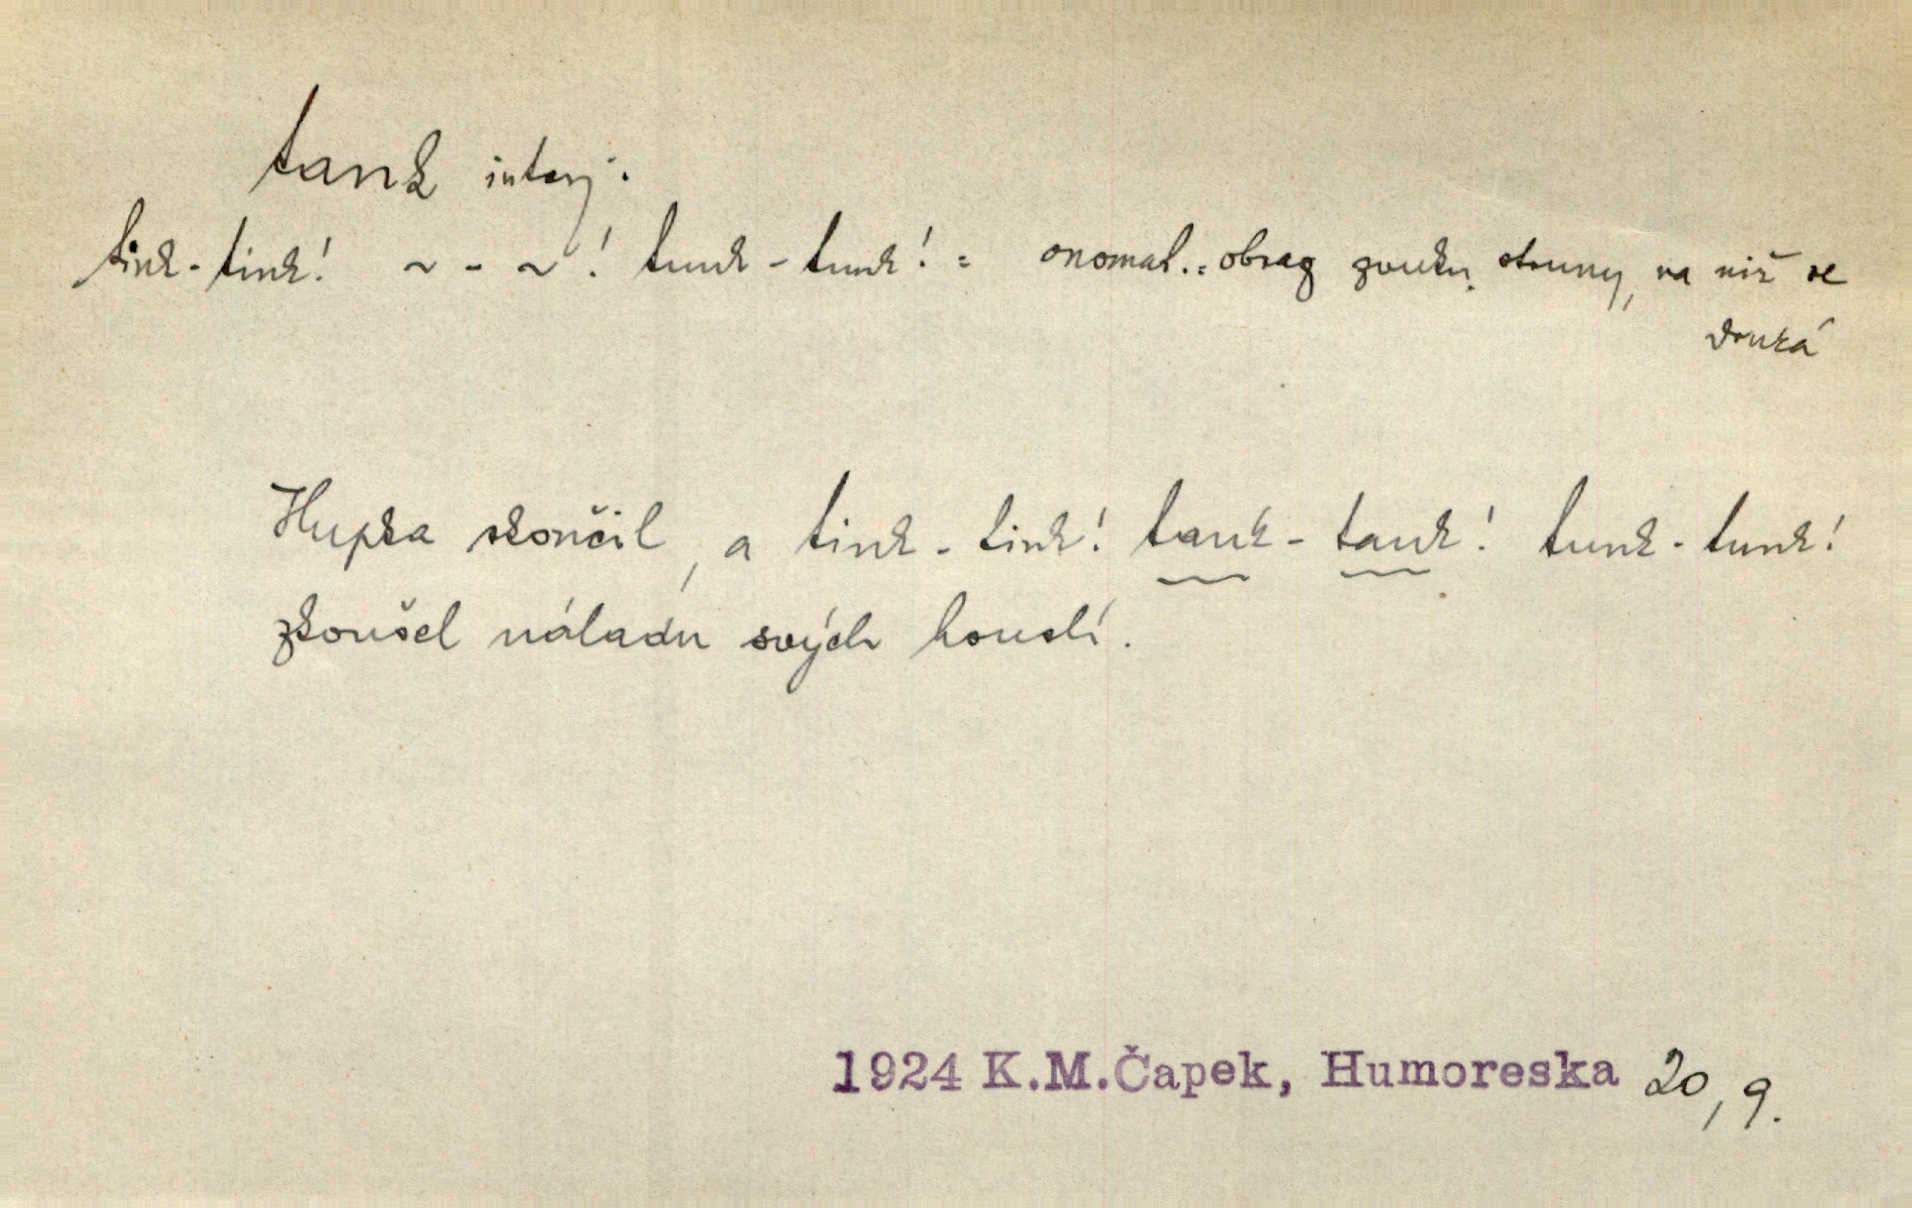 tank interj.
tink-tink! ~ - ~! tunk-tunk! = onomat. = obraz zvuku struny, na niž se
brnká
Hupka skončil, a tink-tink! tank-tank! tunk-tunk!
zkoušel náladu svých houslí.
1924 K.M.Čapek, Humoreska 20, 9.